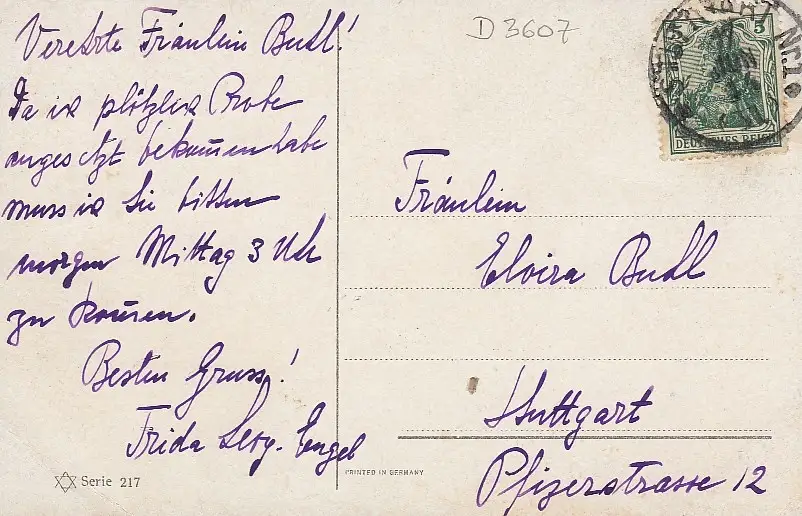 Verehrte Fräulein Budl!
Da ich plötzlich Probe
angesetzt bekommen habe
muss ich Sie bitten
morgen Mittag 3 Uhr
zu kommen.
Besten Gruss!
Frida Engel
Serie 217
PRINTED IN GERMANY
D 3607
5
DEUTSCHES REICH
Nr. 1
Fräulein
Elvira Budl
Stuttgart
Pfizerstrasse 12